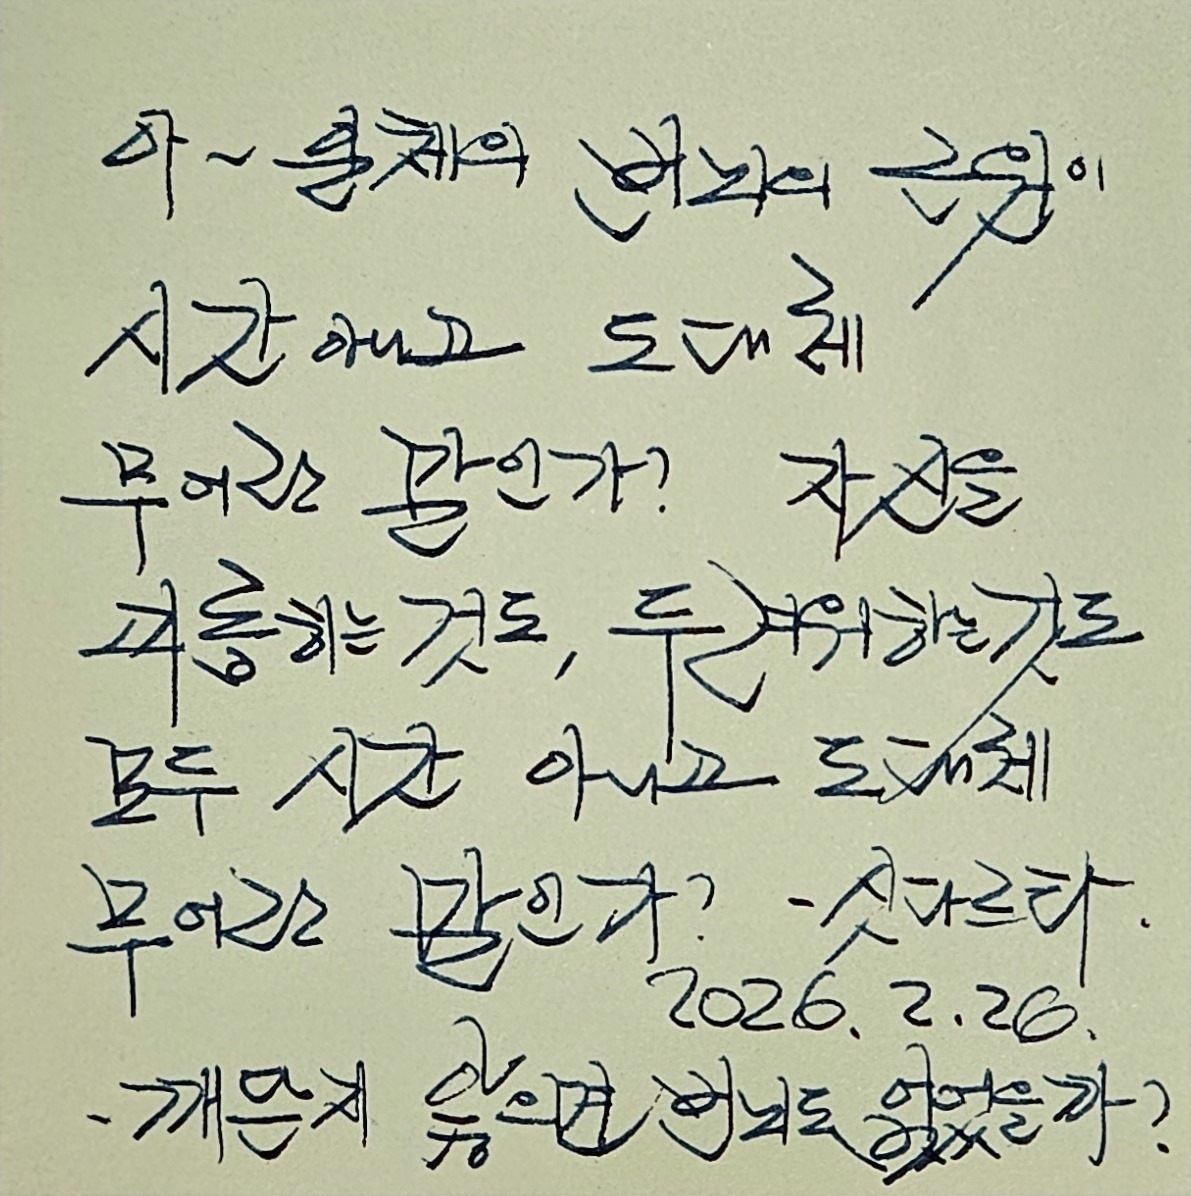 아~ 일체의 번뇌의 근원이
시간 아니고 도대체
무어란 말인가? 자신을
괴롭히는 것도, 두려워하는 것도
모두 시간 아니고 도대체
무어란 말인가? - 싯다르타.
2026. 2. 26.
- 깨닫지 않으면 번뇌도 없었을까?